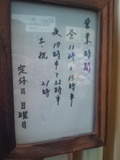 営業時間
昼11時〜15時
夜17時〜22時
土、祝 21時
定休日 日曜日